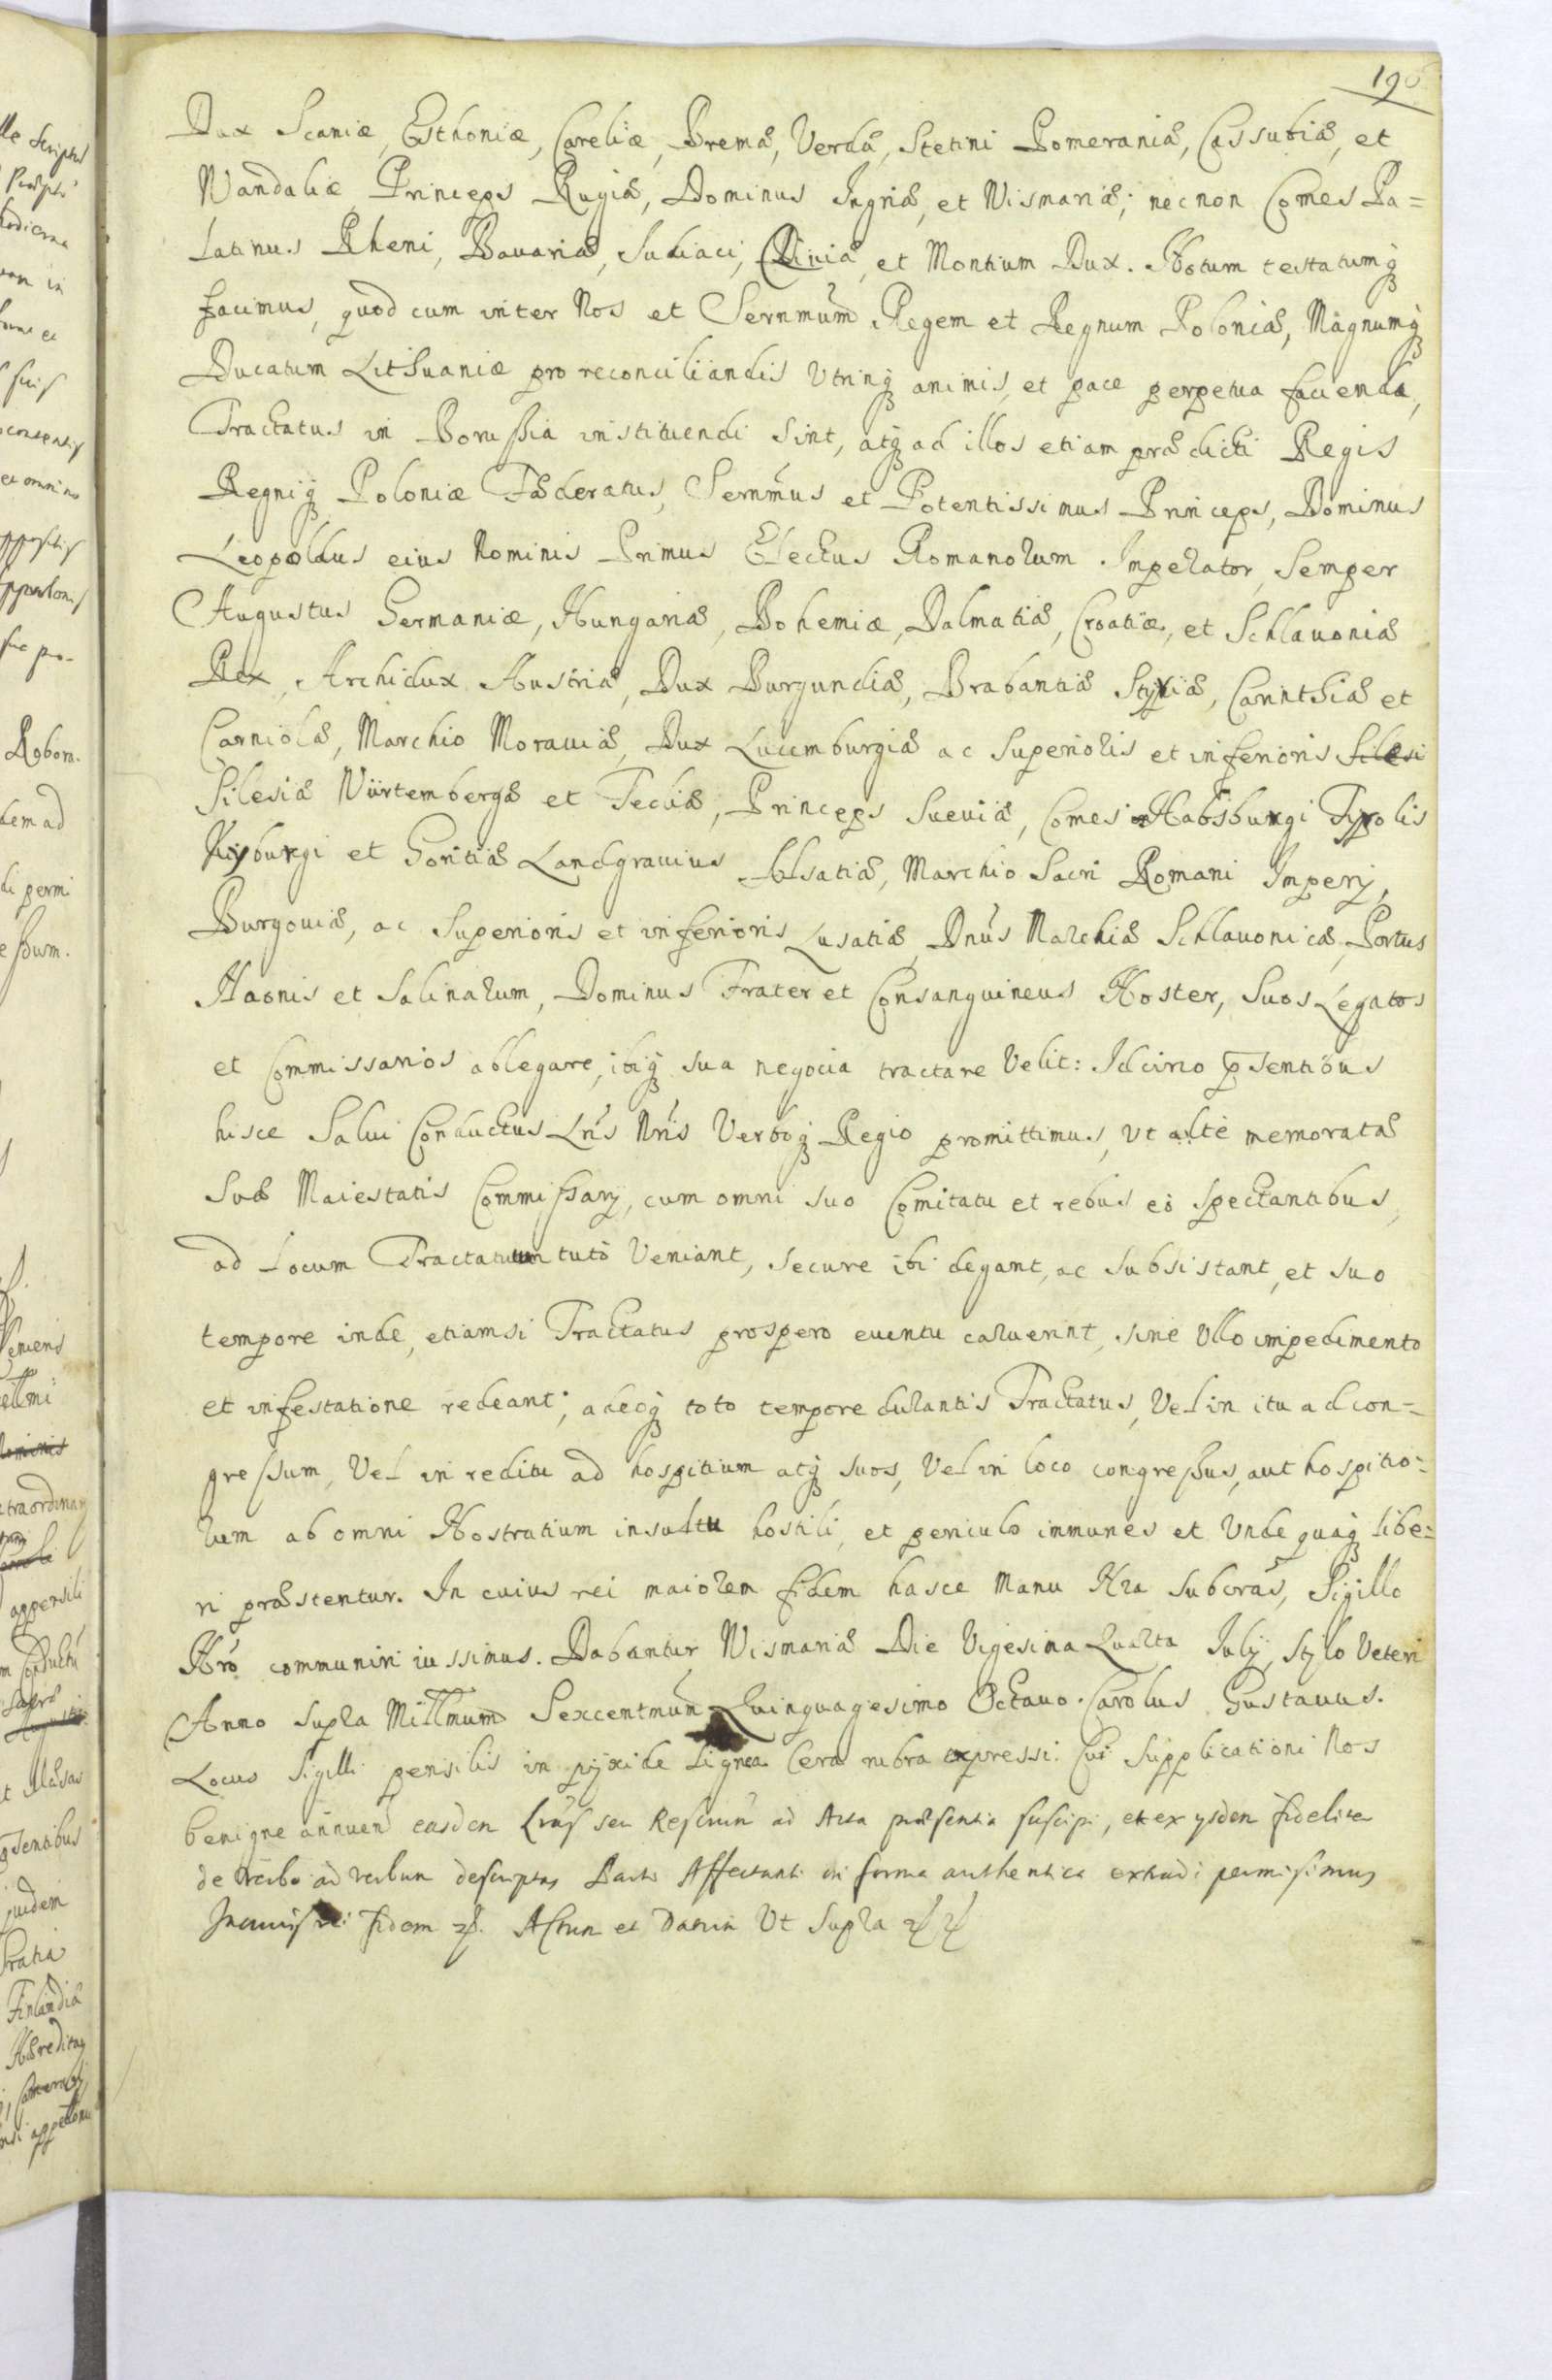 196
Dux Scaniæ, Esthoniæ, Careliæ, Bremæ, Verdæ, Stetini Pomeraniæ, Cassubiæ, et
Vandaliæ Princeps Rugiæ, Dominus Ingriæ, et Wismariæ; nec non Comes Pa=
latinus Rheni, Bavariæ, Juliaci, Cliviæ, et Montium Dux. Notum testatumq
facimus, quod cum inter Nos et Sernmum Regem et Regnum Poloniæ, Magnumq
Ducatum Lithuaniæ pro reconciliandis Utrinq animis, et pace perpetua facienda,
Tractatus in Borussia instituendi sint, atq ad illos etiam prædicti Regis
Regniq Poloniæ Fœderatus, Sernmus et Potentissimus Princeps, Dominus
Leopoldus eius Nominis Primus Electus Romanorum Imperator, Semper
Augustus Germaniæ, Hungariæ, Bohemiæ, Dalmatiæ, Croatiæ, et Schlavoniæ
Rex, Archidux Austriæ, Dux Burgundiæ, Brabantiæ Styriæ, Carinthiæ et
Carniolæ, Marchio Moraviæ, Dux Lucemburgiæ ac Superioris et inferioris Silesi
Silesiæ Würtembergæ et Teckæ, Princeps Sueviæ, Comes Habsburgi Tyrolis
Kyburgi et Goritiæ Landgravius Alsatiæ, Marchio Sacri Romani Imperij,
Burgoviæ, ac Superioris et inferioris Lusatiæ, Dnus Marchiæ Schlavonicæ, Portus
Naonis et Salinarum, Dominus Frater et Consanguineus Noster, Suos Legatos
et Commissarios ablegare, ibiq sua negocia tractare Velit: Idcirco psentibus
hisce Salvi Conductus Lris Nris Verboq Regio promittimus, Ut alte memoratæ
Suæ Maiestatis Commissarij, cum omni suo Comitatu et rebus eo spectantibus,
ad Locum Tractatuum tutò Veniant, secure ibi degant, ac subsistant, et suo
tempore inde, etiamsi Tractatus prospero eventu caruerint, sine Ullo impedimento
et infestatione redeant; adeoq toto tempore durantis Tractatus, Vel in itu ad con=
gressum, Vel in reditu ad hospitium atq suos, Vel in loco congressus, aut hospitio=
rum ab omni Nostratium insultu hostili, et periculo immunes et Undequaq libe=
ri præstentur. In cuius rei maiorem fidem hasce Manu Nra Subcras, Sigillo
Nro communiri iussimus. Dabantur Wismariæ Die Vigesima Quarta Julij, Stylo Veteri
Anno supra Millmum Sexcentmum Quinquagesimo Octavo. Carolus Gustavus.
Locus Sigilli pensilis in pyxide Lignea Cera rubra expressi. Cui Supplicationi Nos
benigne annuen easdem Lras seu Rescrum ad Acta præsentia suscipi, et ex ijsdem fideliter
de verbo ad verbum descriptas Parti Affectanti in forma authentica extradi permisimus
In cuius rei fidem Actum et Datum Ut Supra